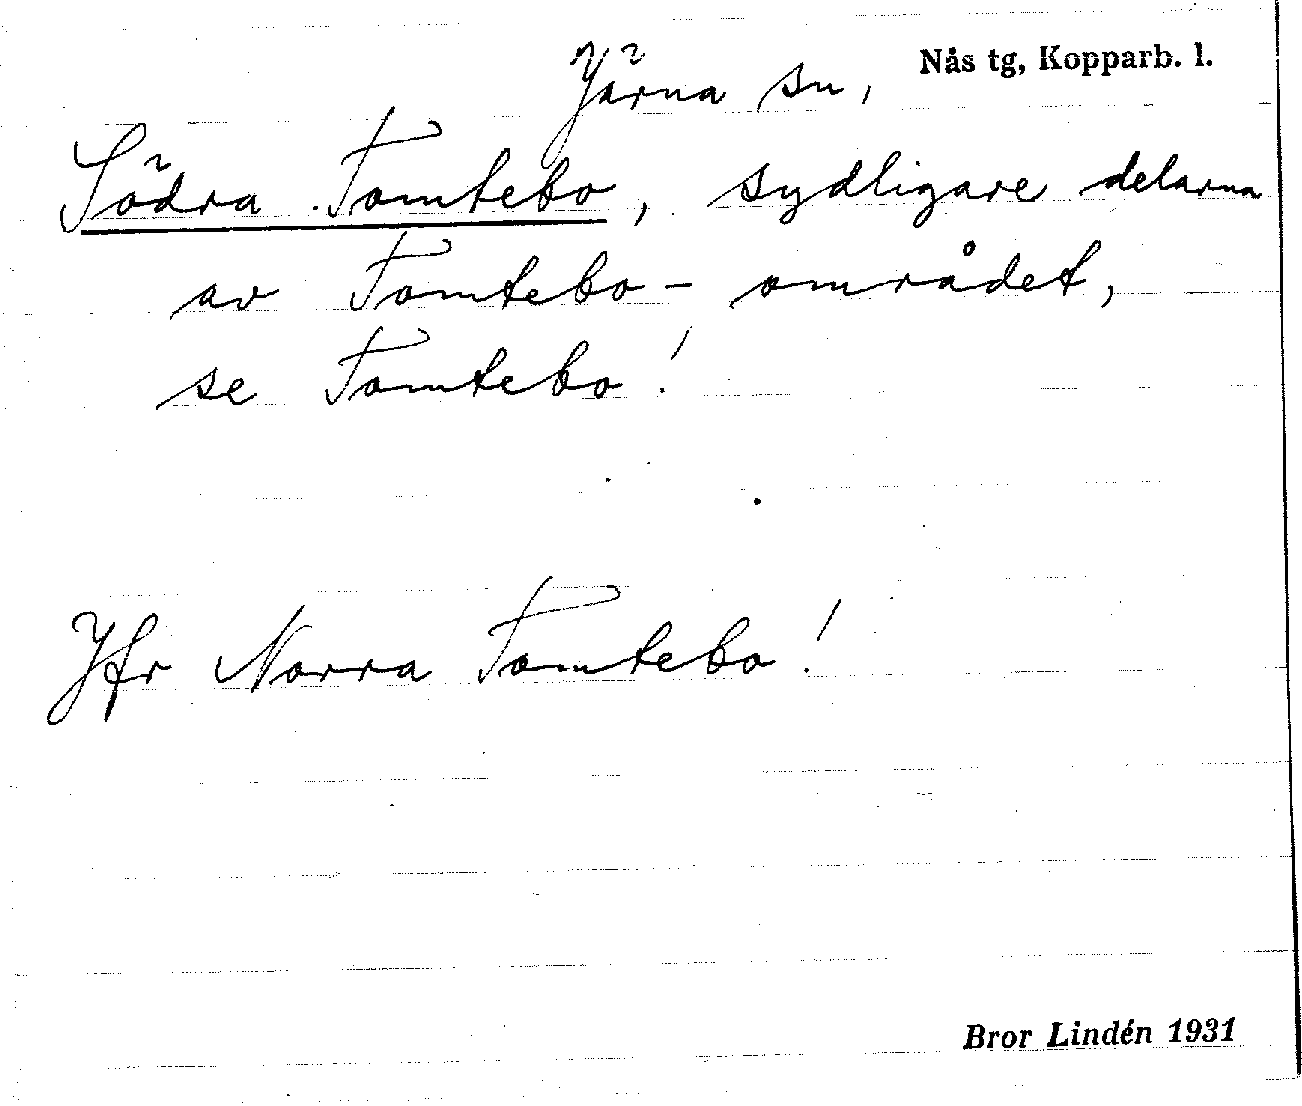 Järna sn, Nås tg, Kopparb. l.
Södra Tomtebo, sydligare delarna
av Tomtebo-området,
se Tomtebo!
Jfr Norra Tomtebo!
Bror Lindén 1931